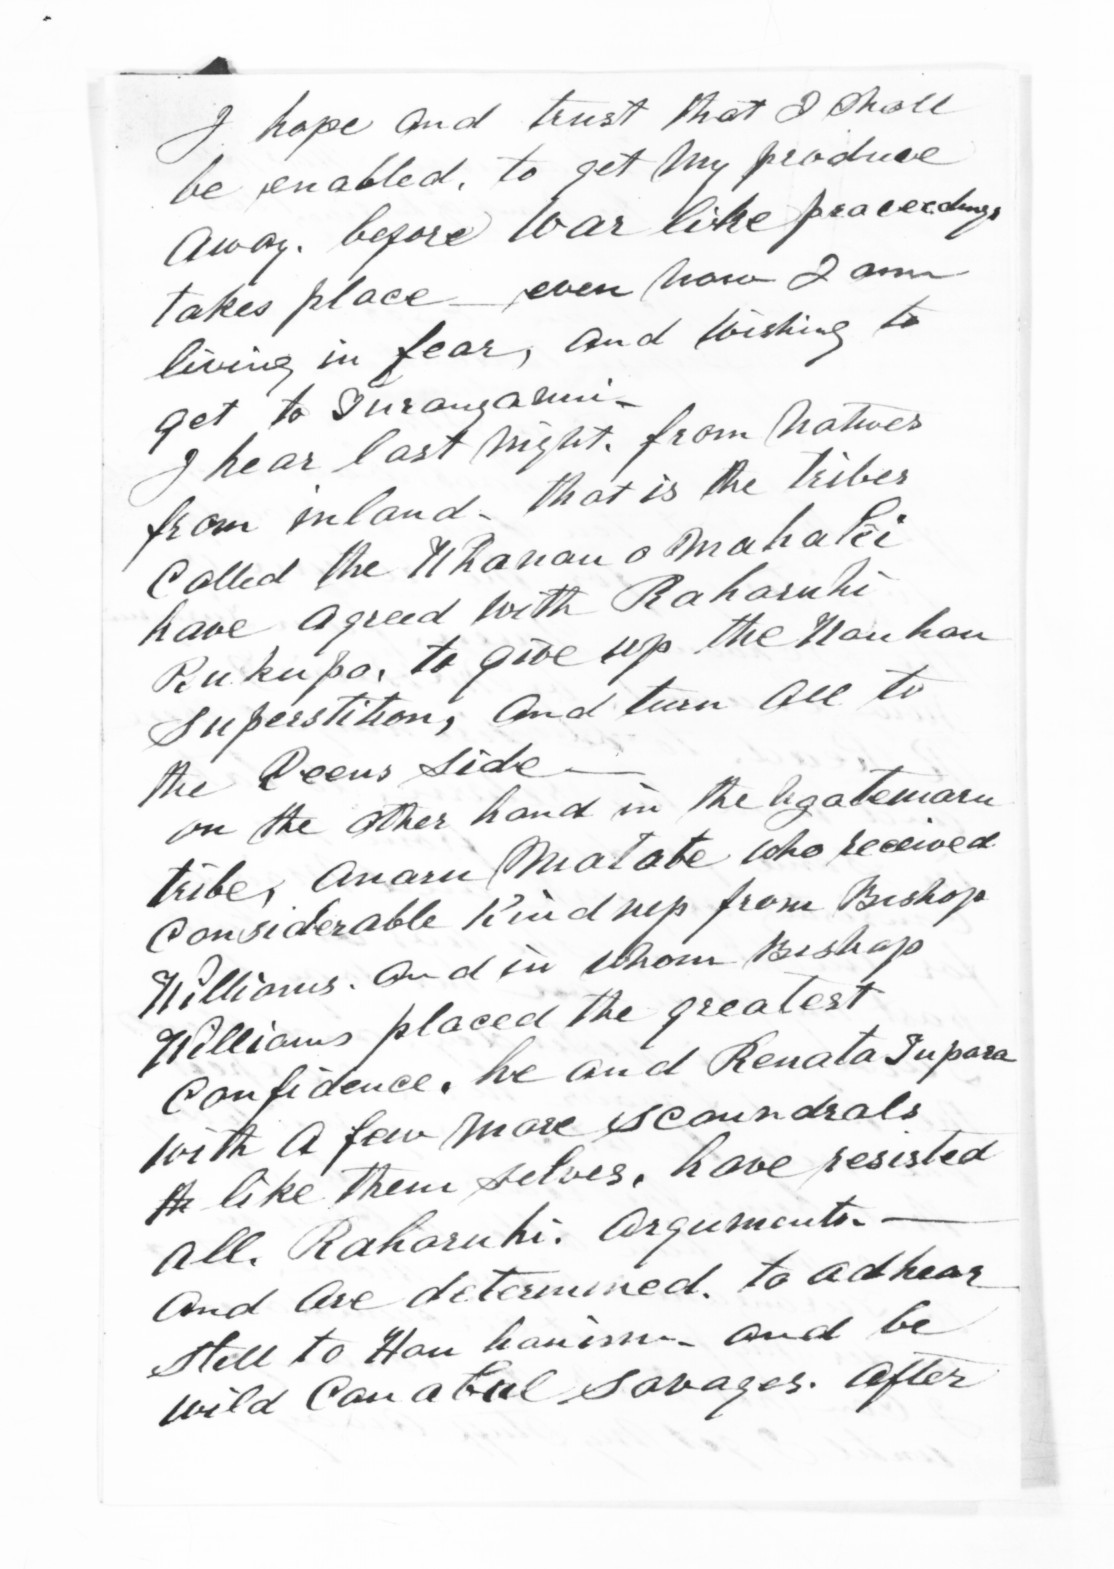 I hope and trust that I shall
be enabled. to get my produce
away. before War like proceedings
takes place — even now I am
living in fear, and wishing to
get to Turanganui-
I hear last night. from natives
from inland - that is the tribes
Called the Whanau o Mahaki
have agreed with Raharuhi
Rukupo, to give up the Hau hau
Superstition, and turn all to
the Qeens side —
on the other hand in the ngatemaru
tribe, Anaru Matate who received
Considerable Kindness from Bishop
Williams. and in whom Bishop
Williams placed the greatest
Confidence. he and Renata Tupara
with a few more scoundrals
th like them selves, have resisted
all. Raharuhi. arguments. —
and are determined. to adhear
still to Hau hauism - and be
wild Canabul savages. After